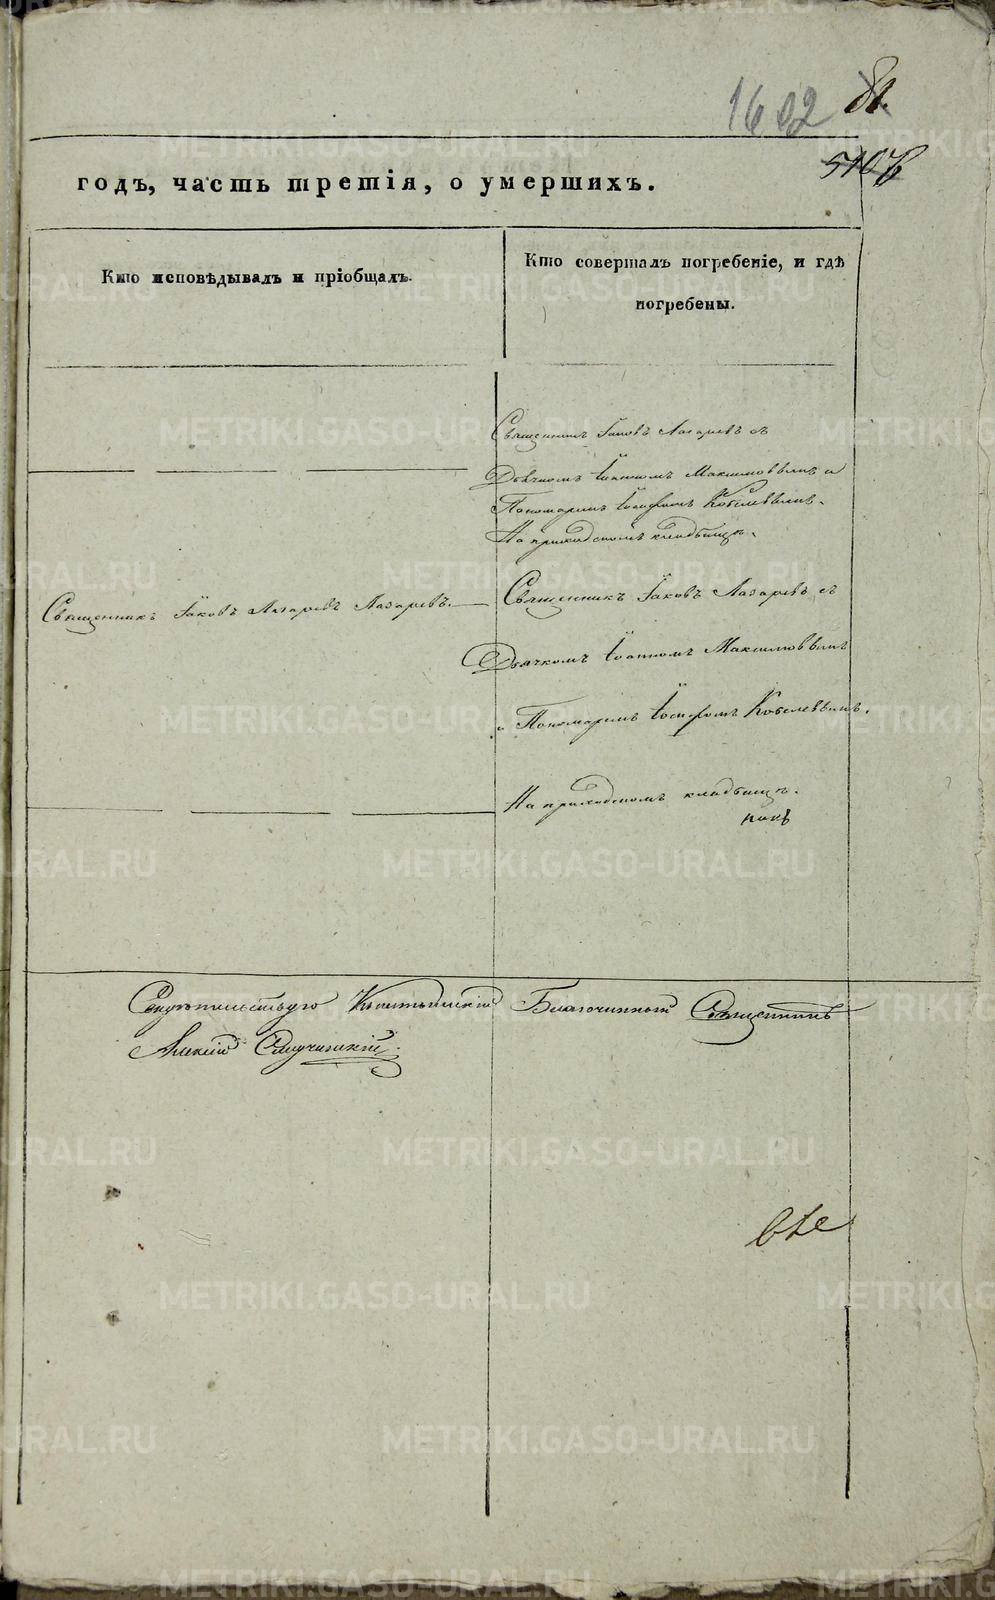 1602 81.
510 б
годъ, часть третія, о умершихъ.
Кто исповѣдывалъ и пріобщалъ.
Кто совершалъ погребеніе, и гдѣ
погребены.
Священникъ Іаковъ Лазаревъ съ
Дьячкомъ Іоанномъ Максимовымъ и
Пономаремъ Іосифомъ Кобелевымъ.
На приходскомъ кладбищѣ.
Священникъ Іаковъ Лазаревъ Лазаревъ.
Священникъ Іаковъ Лазаревъ съ
Дьячкомъ Іоанномъ Максимовымъ
и Пономаремъ Іосифомъ Кобелевымъ.
На приходскомъ кладбищѣ.
Свидѣтельствую Кыштымскій Благочинный Священникъ
Алексій
METRIKI.GASO-URAL.RU